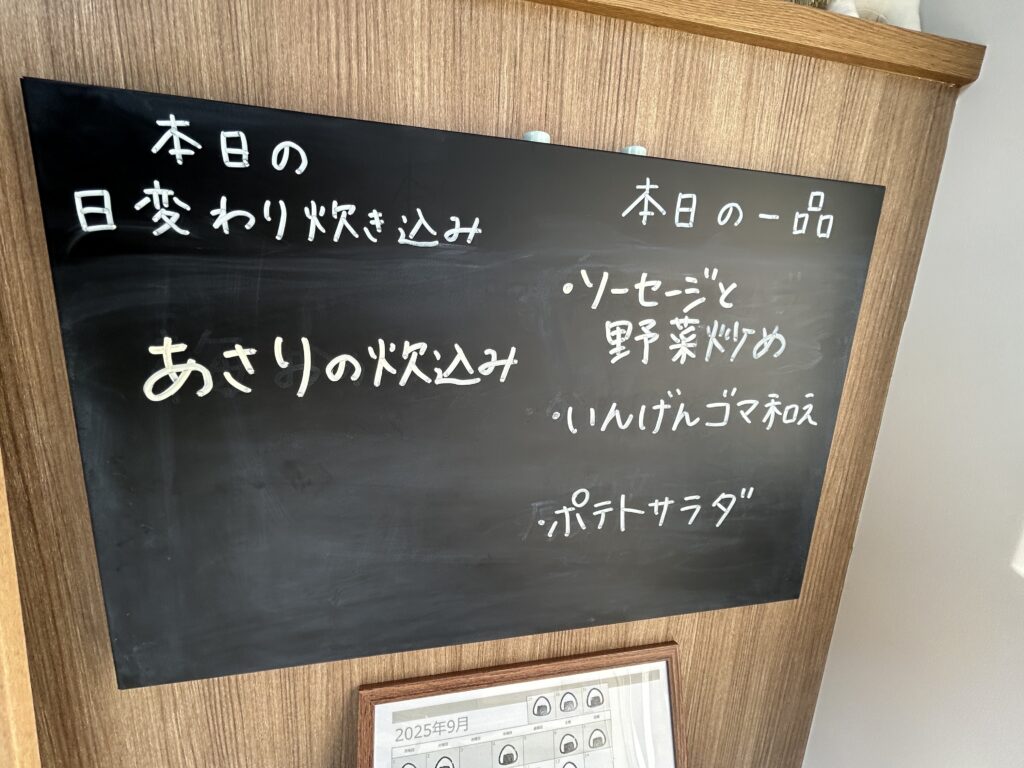 本日の
日変わり炊き込み
あさりの炊込み
本日の一品
・ソーセージと
野菜炒め
・いんげんゴマ和え
・ポテトサラダ
2025年9月